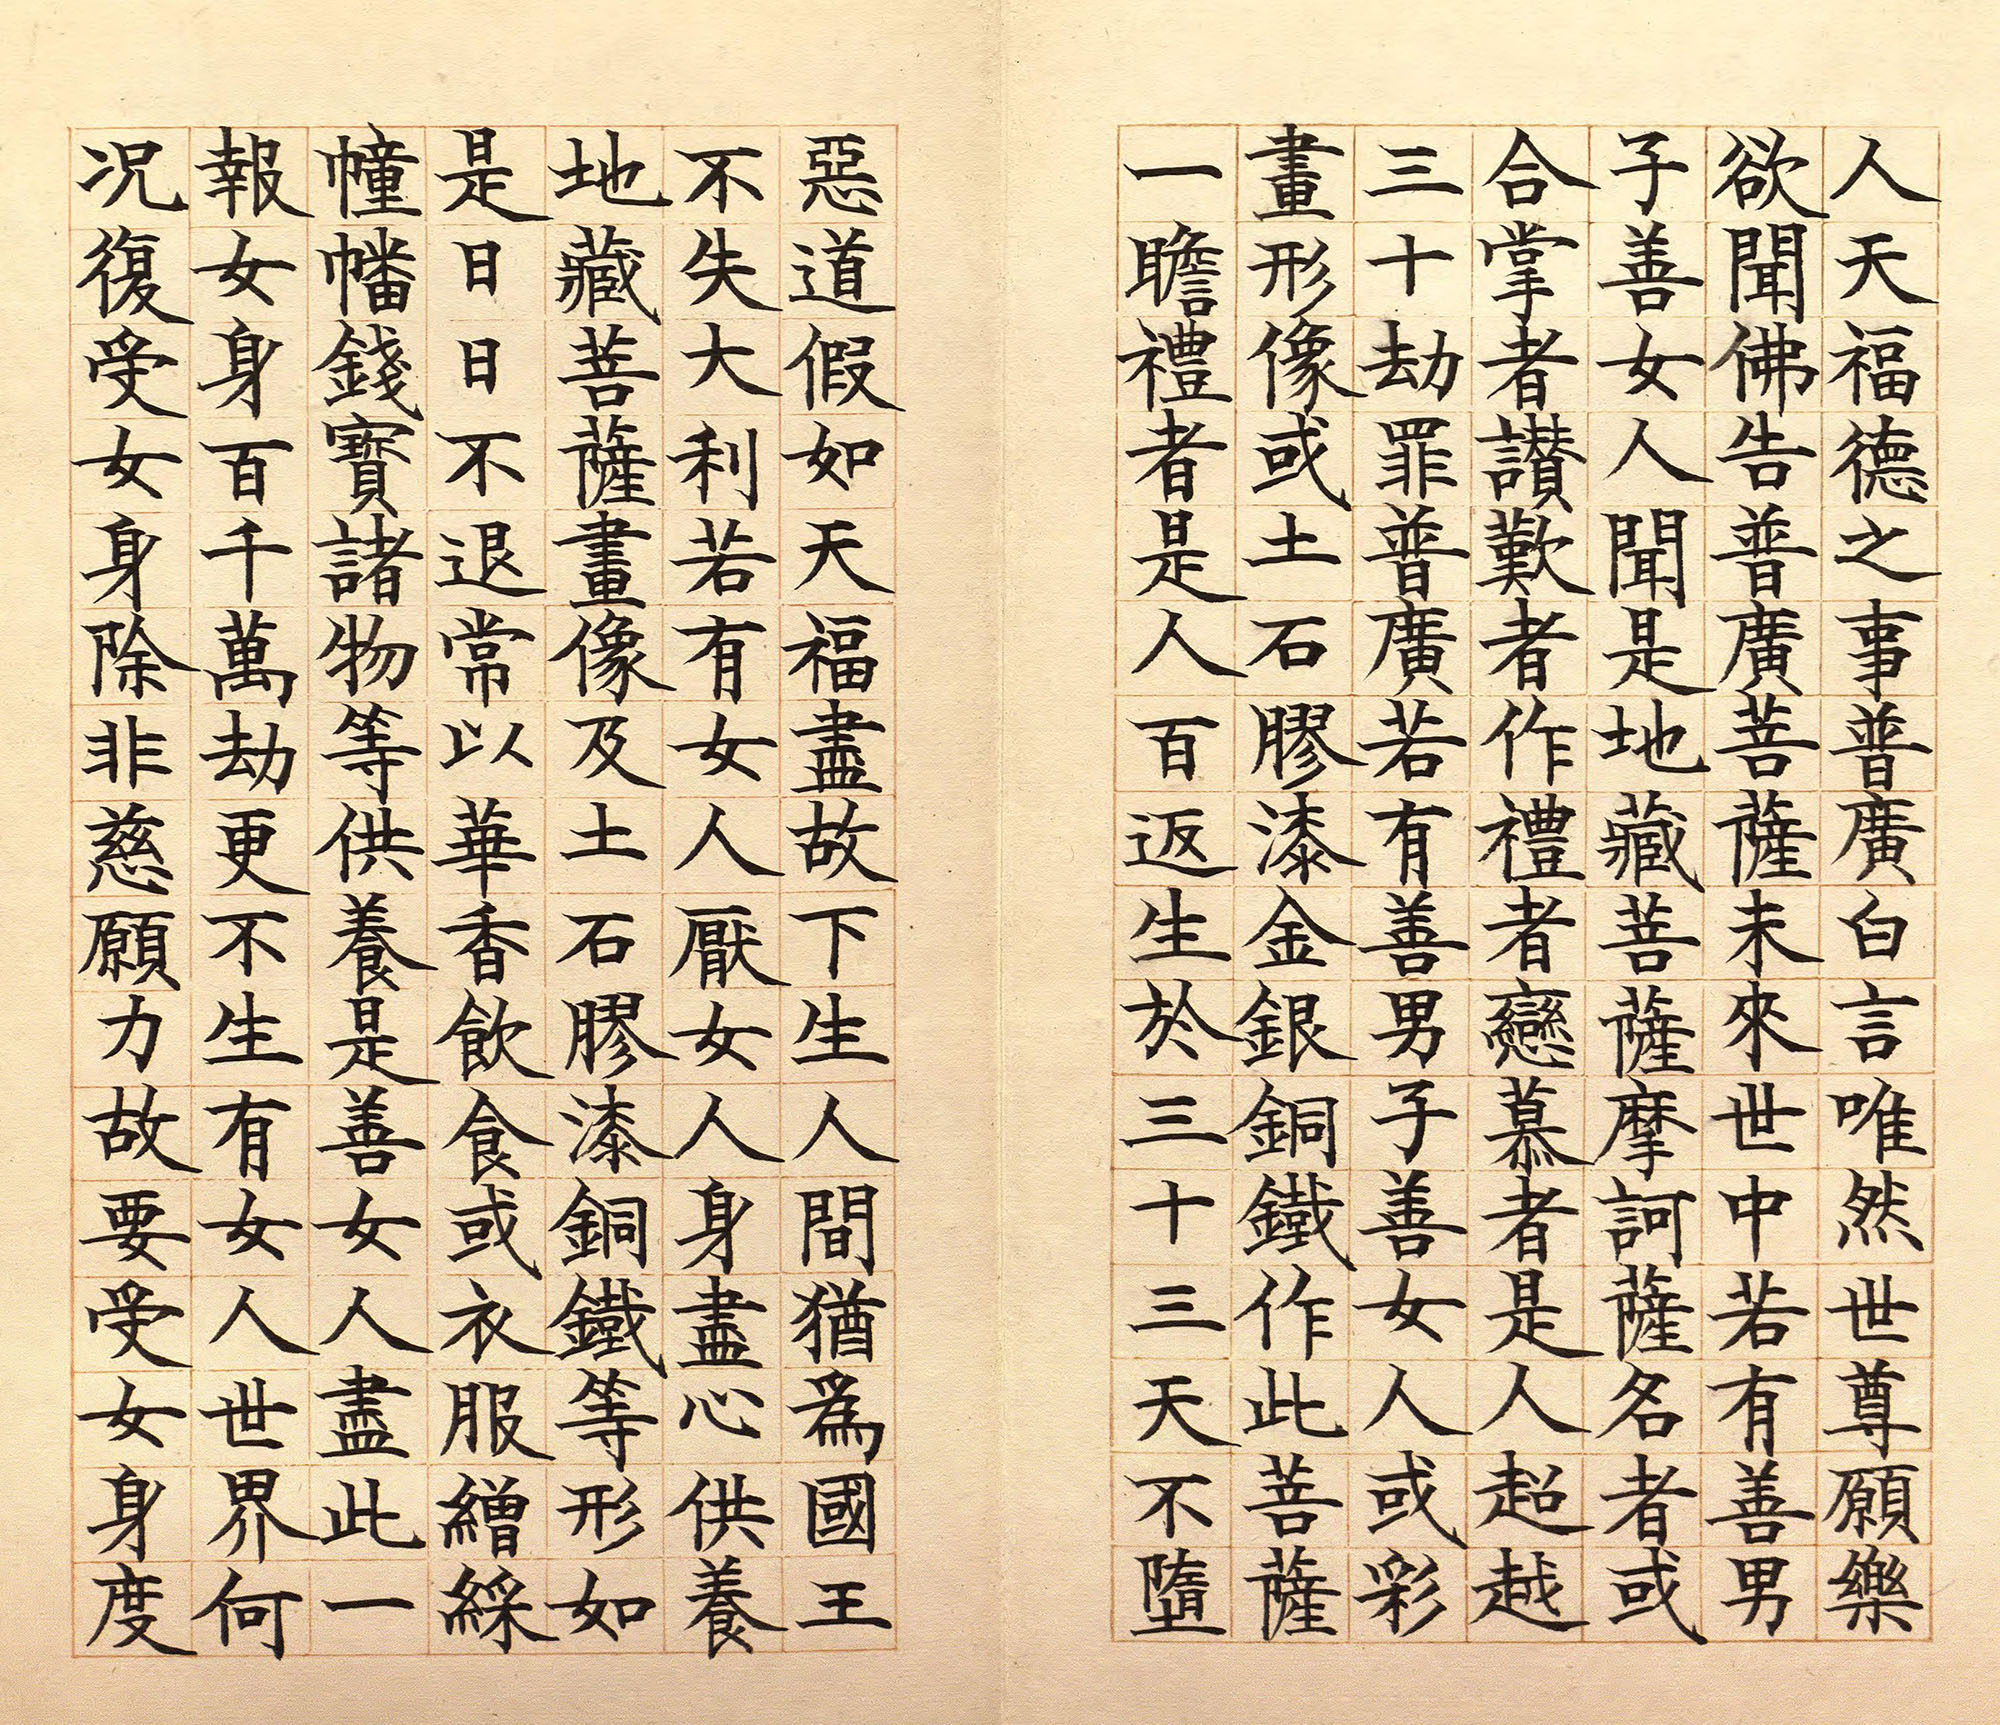 人天福德之事普廣白言唯然世尊願樂
欲聞佛告普廣菩薩未來世中若有善男
子善女人聞是地藏菩薩摩訶薩名者或
合掌者讃歎者作禮者戀慕者是人超越
三十劫罪普廣若有善男子善女人或彩
畫形像或土石膠漆金銀銅鐵作此菩薩
一瞻禮者是人百返生於三十三天不墮
惡道假如天福盡故下生人間猶為國王
不失大利若有女人厭女人身盡心供養
地藏菩薩畫像及土石膠漆銅鐵等形如
是日日不退常以華香飲食或衣服繒綵
幢幡錢寶諸物等供養是善女人盡此一
報女身百千萬劫更不生有女人世界何
况復受女身除非慈願力故要受女身度